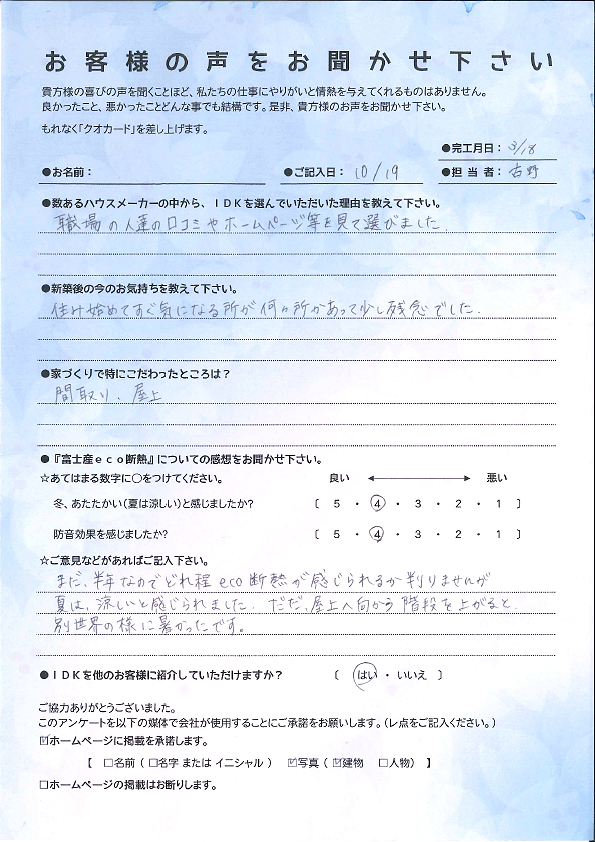 お客様の声をお聞かせ下さい
貴方様の喜びの声を聞くことほど、私たちの仕事にやりがいと情熱を与えてくれるものはありません。
良かったこと、悪かったことどんな事でも結構です。是非、貴方様のお声をお聞かせ下さい。
もれなく「クオカード」を差し上げます。
●完工月日： 3/18
●お名前： ●ご記入日： 10/19 ●担当者： 古野
●数あるハウスメーカーの中から、ＩＤＫを選んでいただいた理由を教えて下さい。
職場の人達の口コミやホームページ等を見て選びました。
●新築後の今のお気持ちを教えて下さい。
住み始めてすぐ気になる所が何ヶ所かあって少し残念でした。
●家づくりで特にこだわったところは？
間取り、屋上
●『富士産ｅｃｏ断熱』についての感想をお聞かせ下さい。
☆あてはまる数字に○をつけてください。 良い 悪い
冬、あたたかい（夏は涼しい）と感じましたか？ 〔 5 ・ 4 ・ 3 ・ 2 ・ 1 〕
防音効果を感じましたか？ 〔 5 ・ 4 ・ 3 ・ 2 ・ 1 〕
☆ご意見などがあればご記入下さい。
まだ、半年なのでどれ程eco断熱が感じられるか判りませんが
夏は、涼しいと感じられました。ただ、屋上へ向かう階段を上がると、
別世界の様に暑かったです。
●ＩＤＫを他のお客様に紹介していただけますか？ 〔 はい ・ いいえ 〕
ご協力ありがとうございました。
このアンケートを以下の媒体で会社が使用することにご承諾をお願いします。（レ点をご記入ください。）
☑ホームページに掲載を承諾します。
【 □名前（ □名字 または イニシャル ） ☑写真（ ☑建物 □人物） 】
□ホームページの掲載はお断りします。